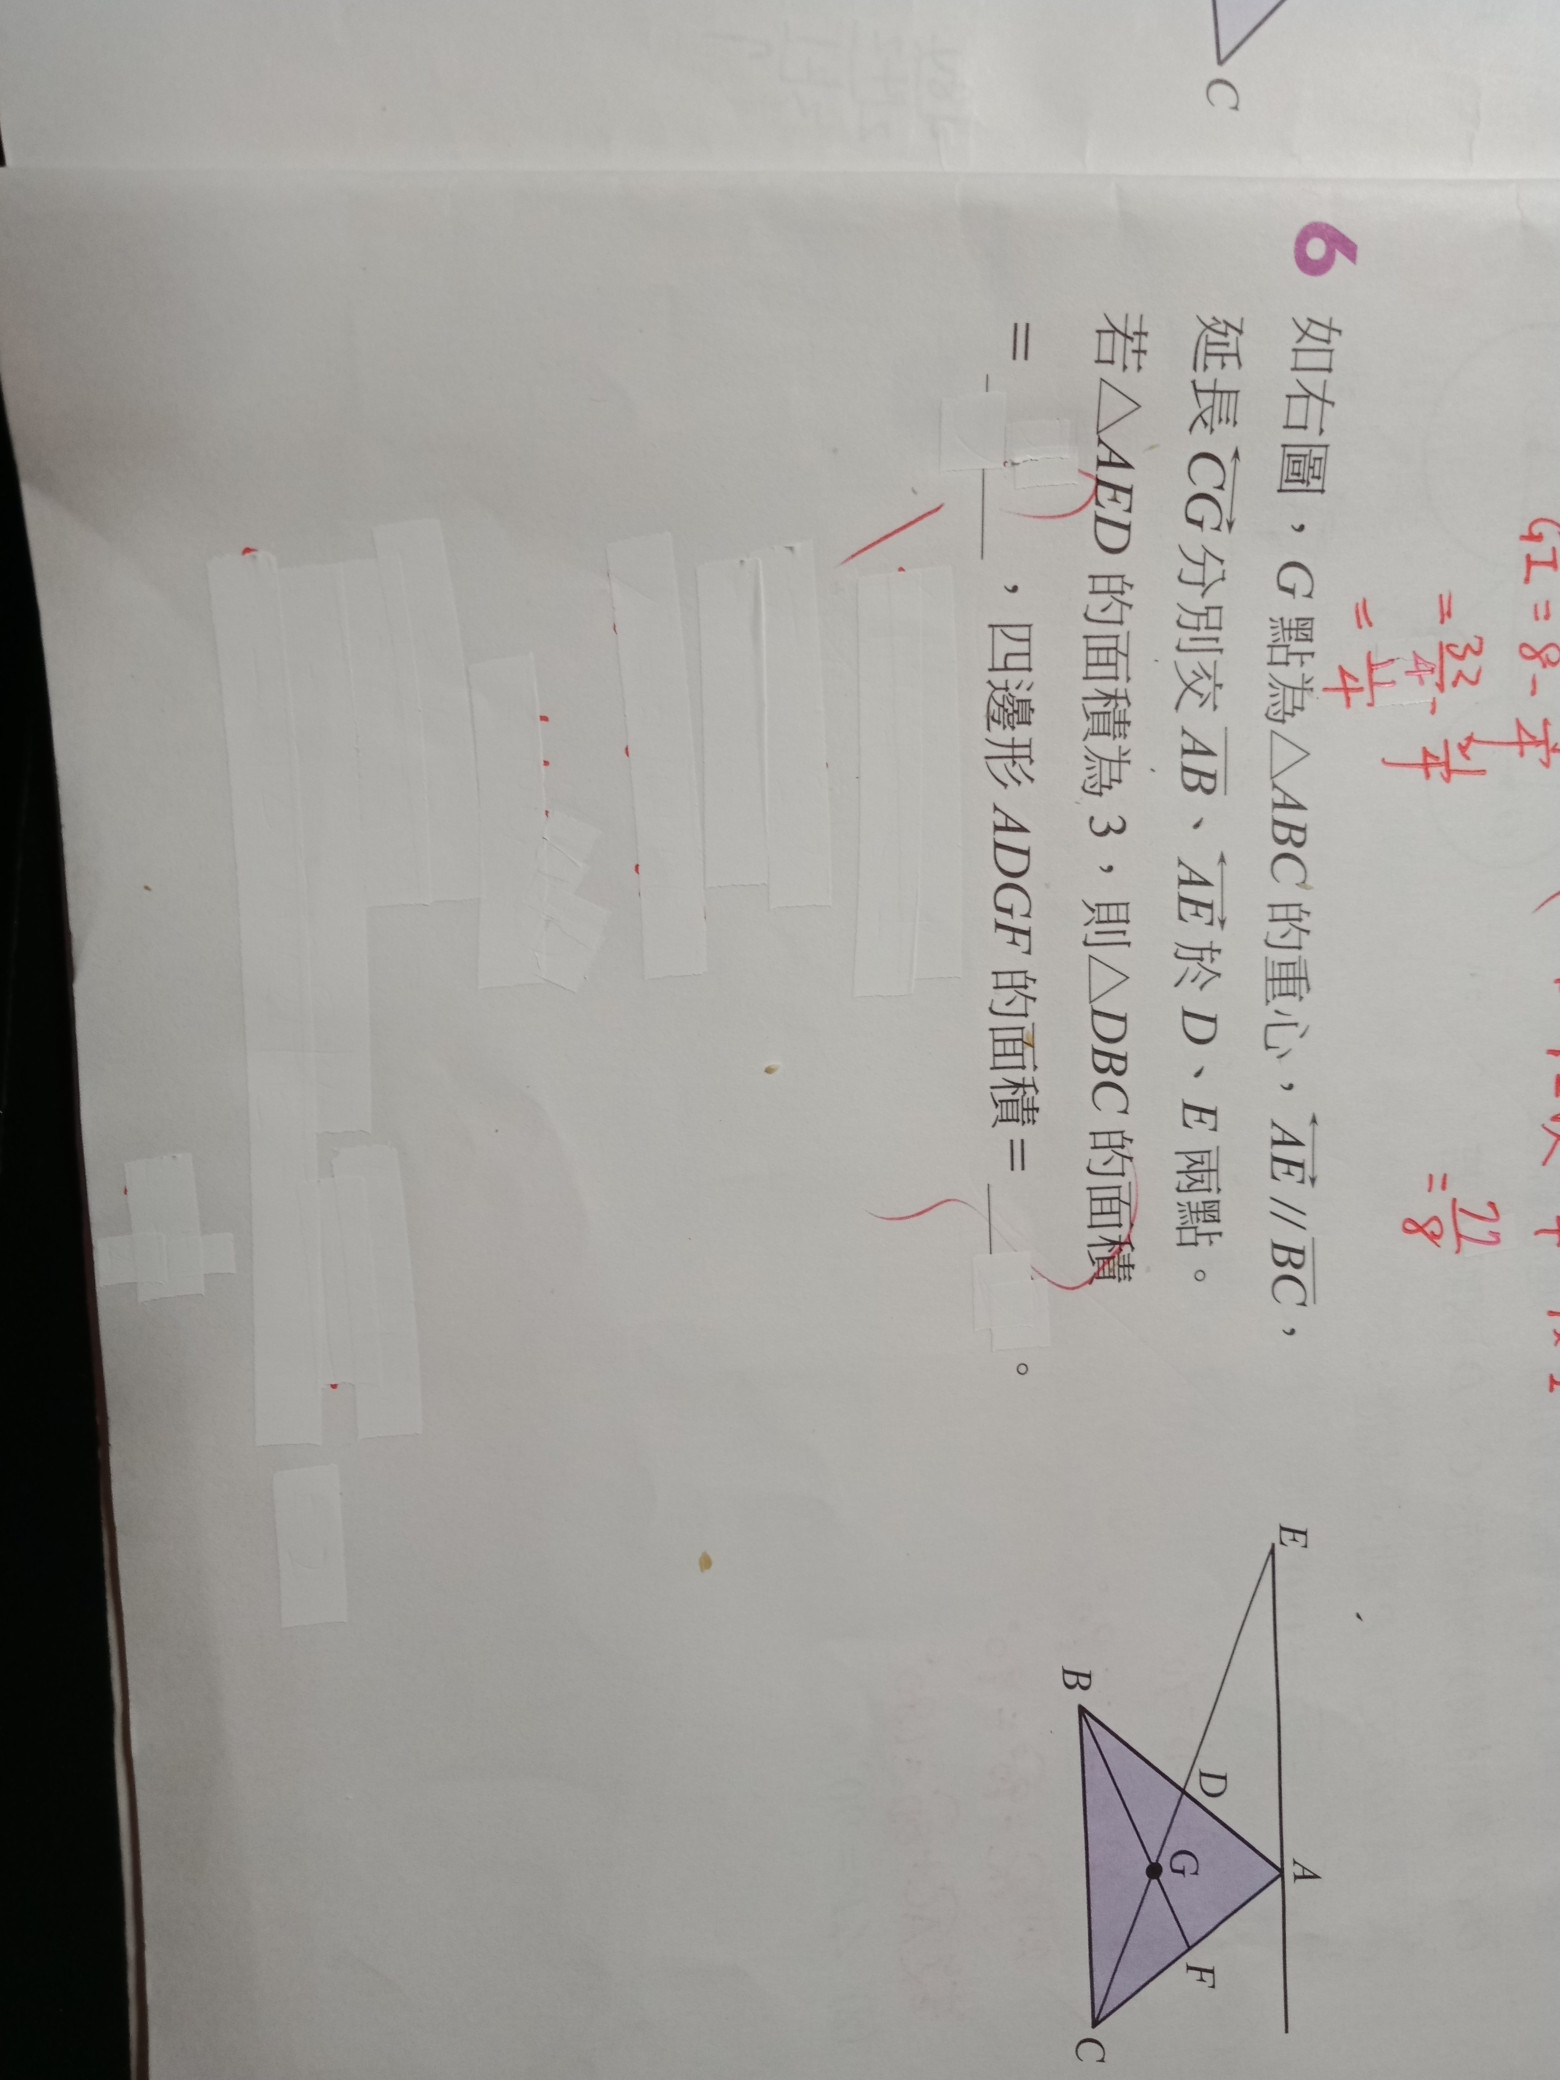 C
GI = 8 -
= 32/4 -
= 11/4
= 22/8
6 如右圖，G 點為△ABC 的重心，AE // BC，
延長 CG 分別交 AB、AE 於 D、E 兩點。
若△AED 的面積為 3，則△DBC 的面積
= ，四邊形 ADGF 的面積 = 。
E
A
D
G
F
B
C